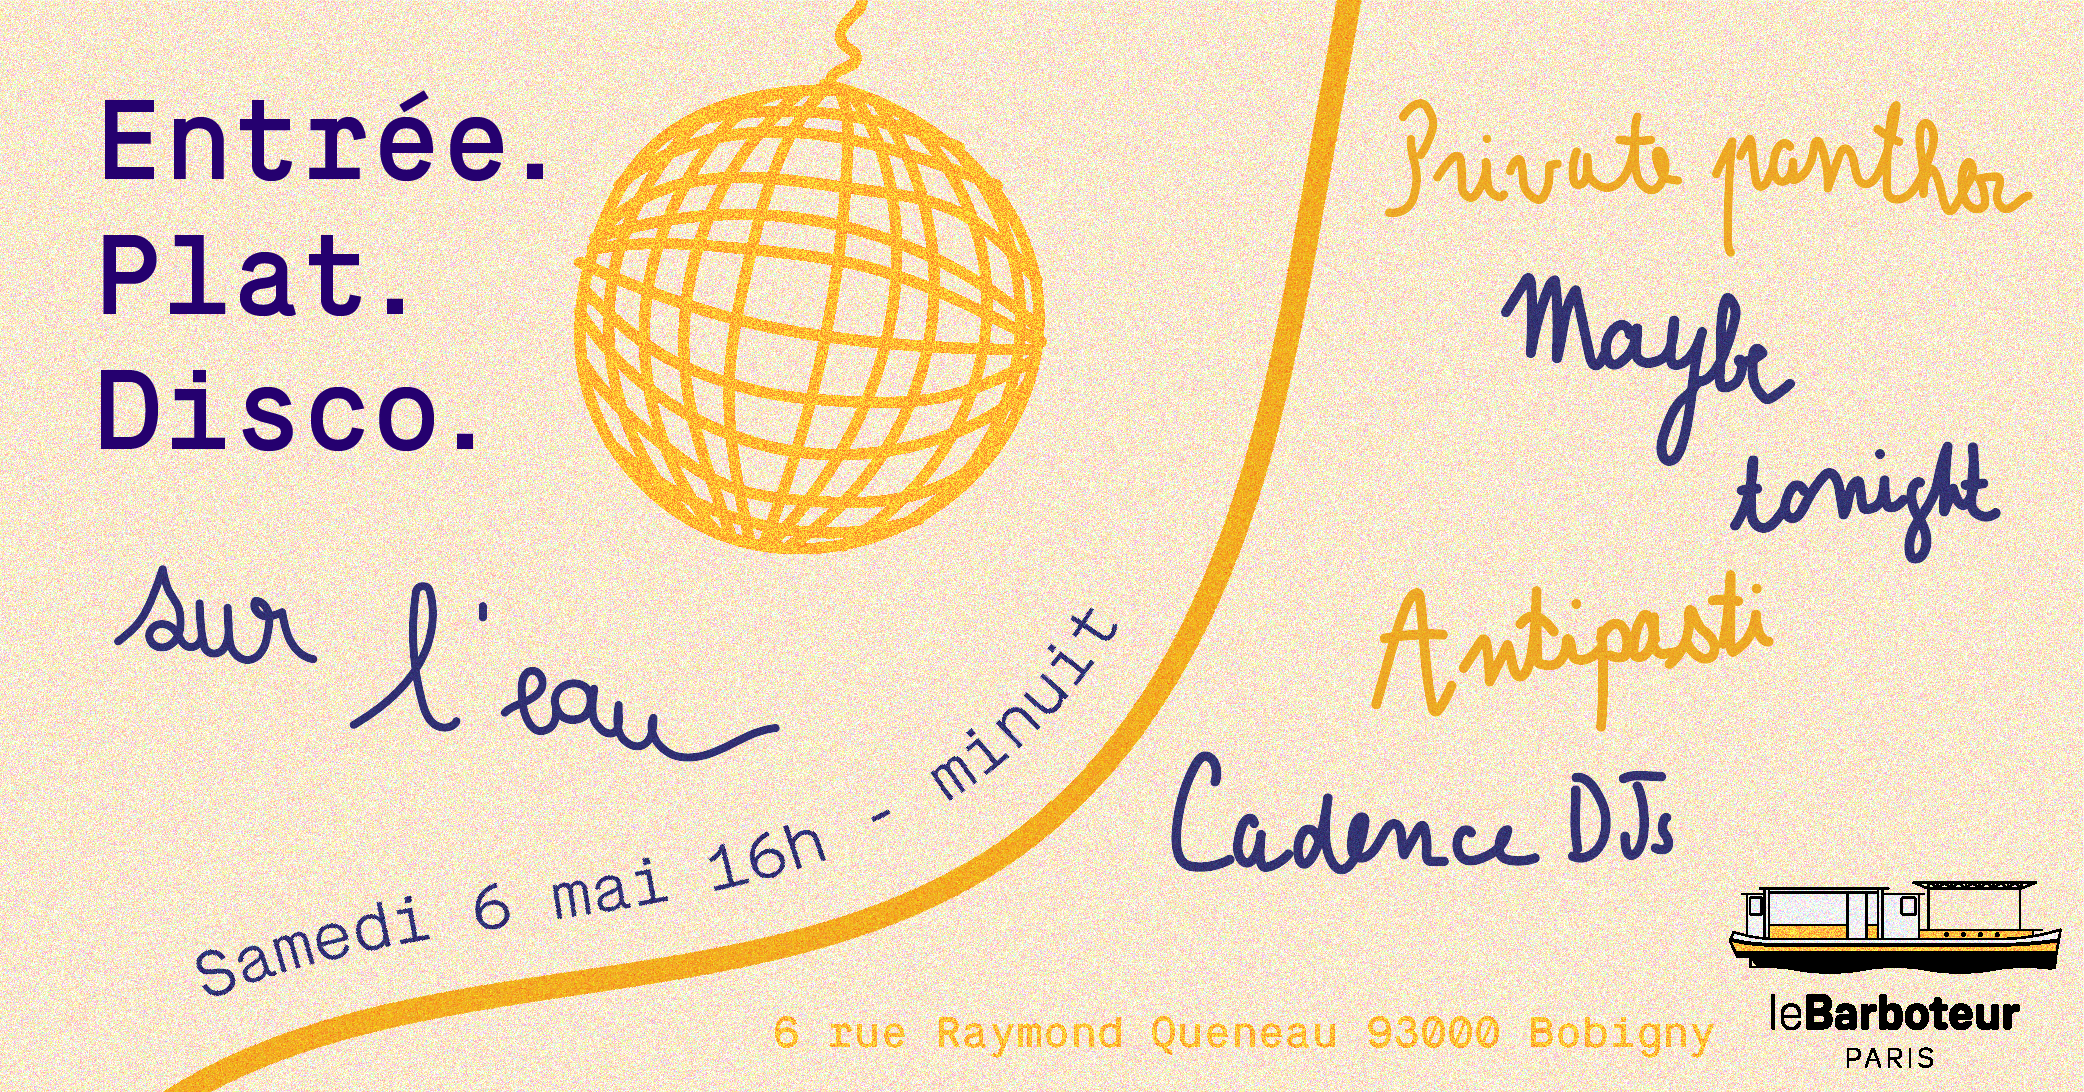 Entrée.
Plat.
Disco.
sur l'eau
Samedi 6 mai 16h - minuit
Private panther
Maybe
tonight
Antipasti
Cadence DJs
6 rue Raymond Queneau 93000 Bobigny
leBarboteur
PARIS